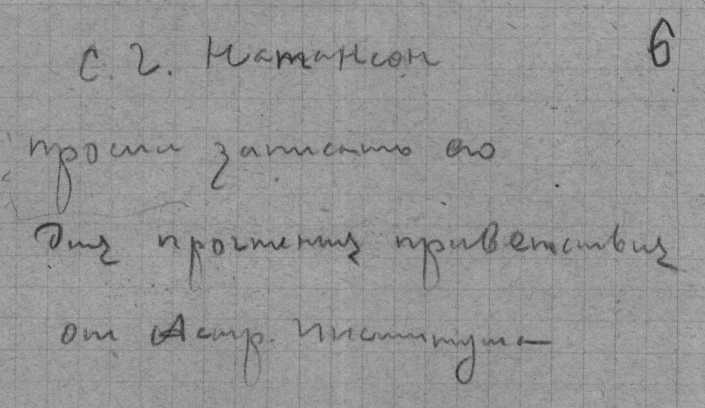 С. Г. Натансон 6
просил записать его
для прочтения приветствия
от Астр. Института